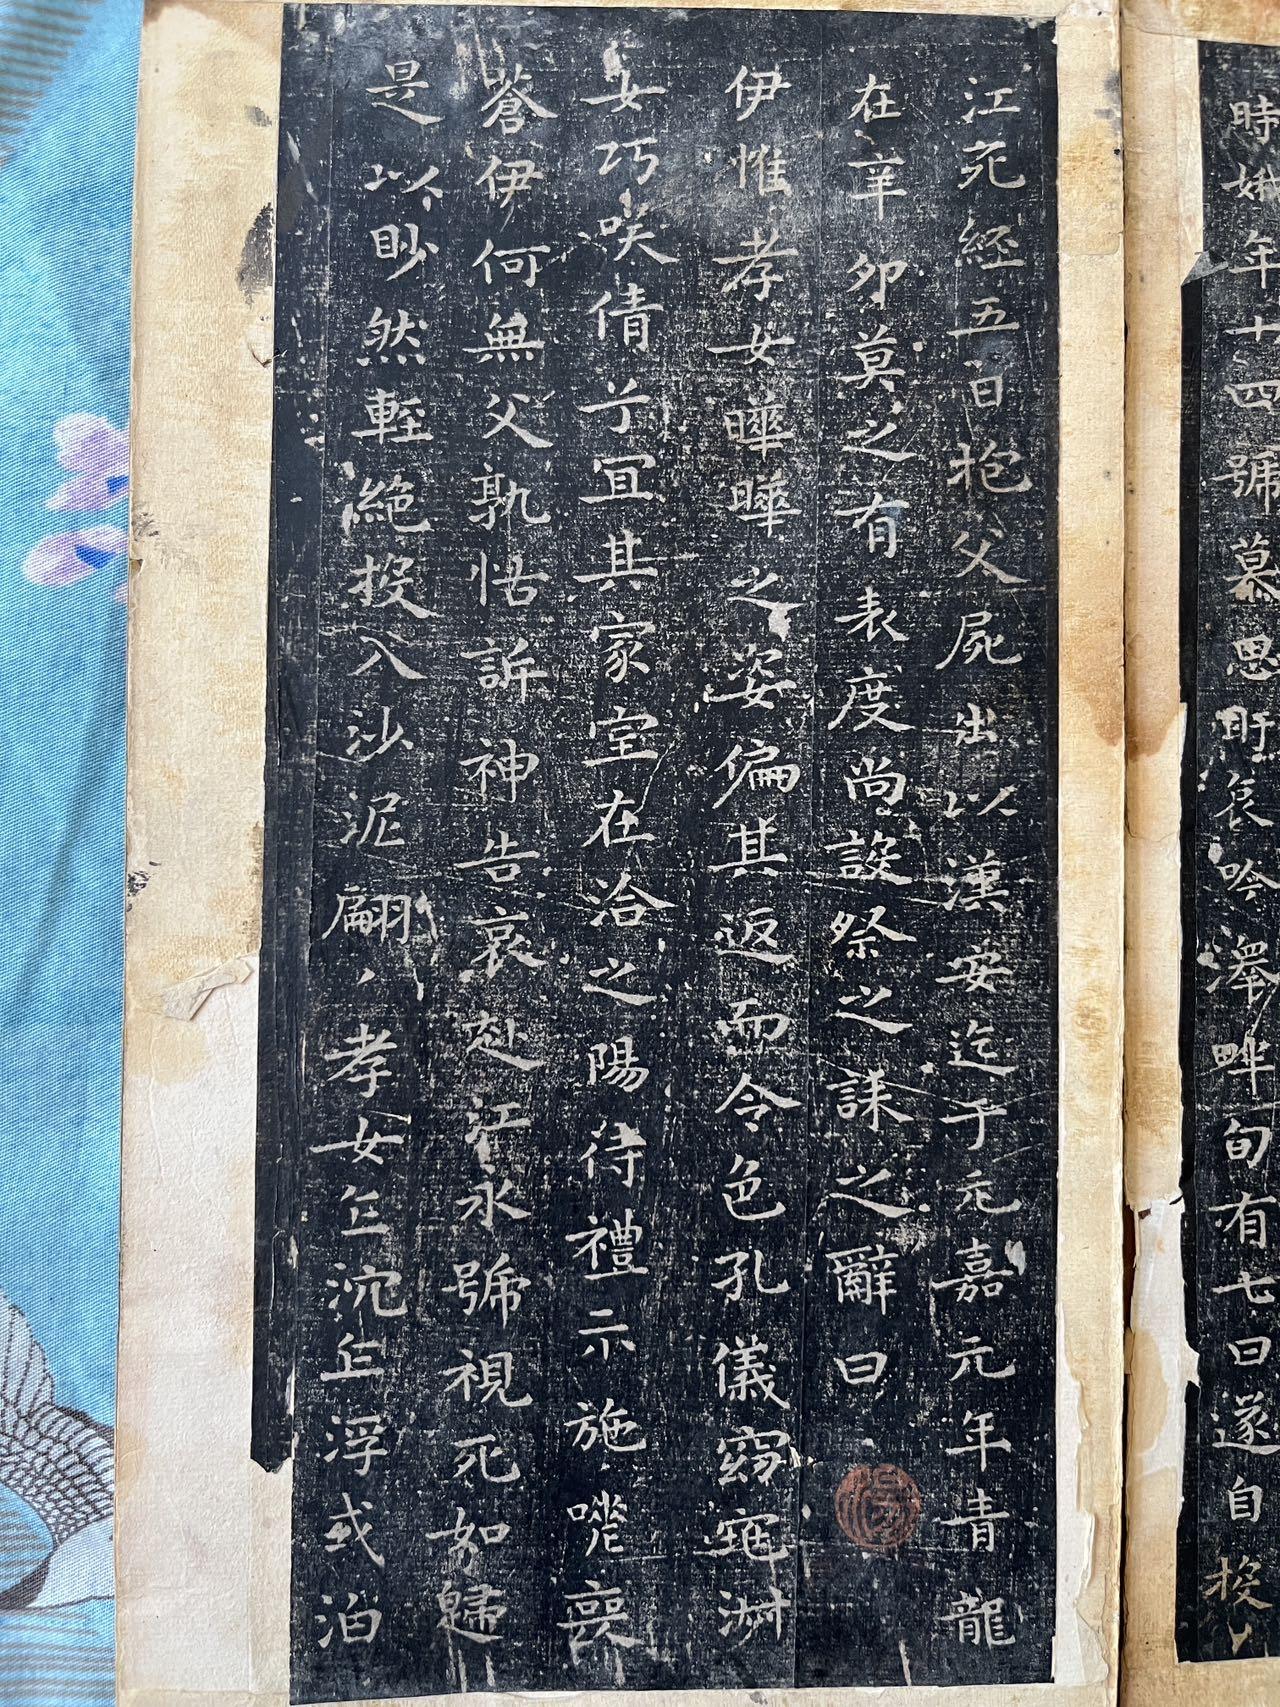 時娥年十四號慕思盱哀吟澤畔旬有七日遂自投
江死經五日抱父屍出以漢安迄于元嘉元年青龍
在辛卯莫之有表度尚設祭之誄之辭曰
伊惟孝女曄曄之姿偏其返而令色孔儀窈窕淑
女巧咲倩兮宜其家室在洽之陽待禮未施嗟喪
蒼伊何無父孰怙訴神告哀赴江永號視死如歸
是以眇然輕絕投入沙泥翩翩孝女乍沉乍浮或泊